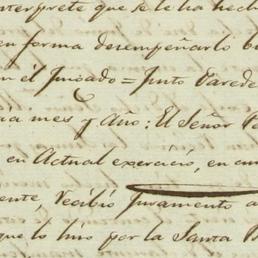 nterprete que se le ha hech
en forma desempeñarlo b
n el Jusgado = Justo Parede
ia mes y Año: El Señor
en Actual exercicio, en cu
ente, recibio Juramento a
que lo hiso por la Santa